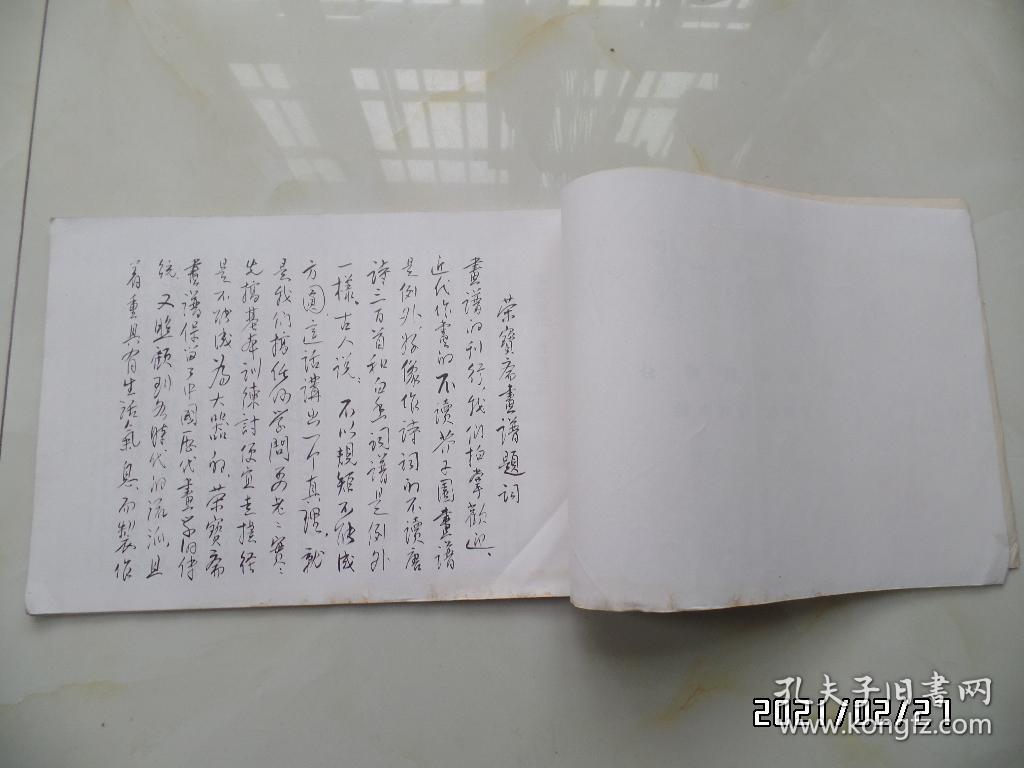 荣寶斋畫譜題词
畫譜的刊行，我们拍掌歡迎、
近代作畫的不讀芥子園畫譜
是例外，好像作詩词的不讀唐
詩三百首和白香词譜是例外
一樣。古人说、不以規矩不能成
方圓這话講出一个真理，就
是我们搞任何学問要老々實々
先搞基本訓練討便宜走捷径
是不能成为大器的。荣寶斋
畫谱保留了中國历代畫家的传
統 又照顾到为時代的流派，且
着重具有生活氣息而製作
孔夫子旧書网
www.kongfz.com
2021/02/27